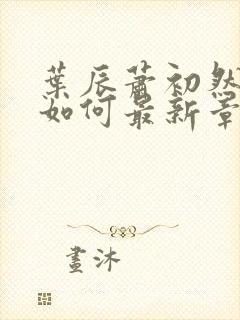 葉辰蕭初然
如何最新章
畫沐